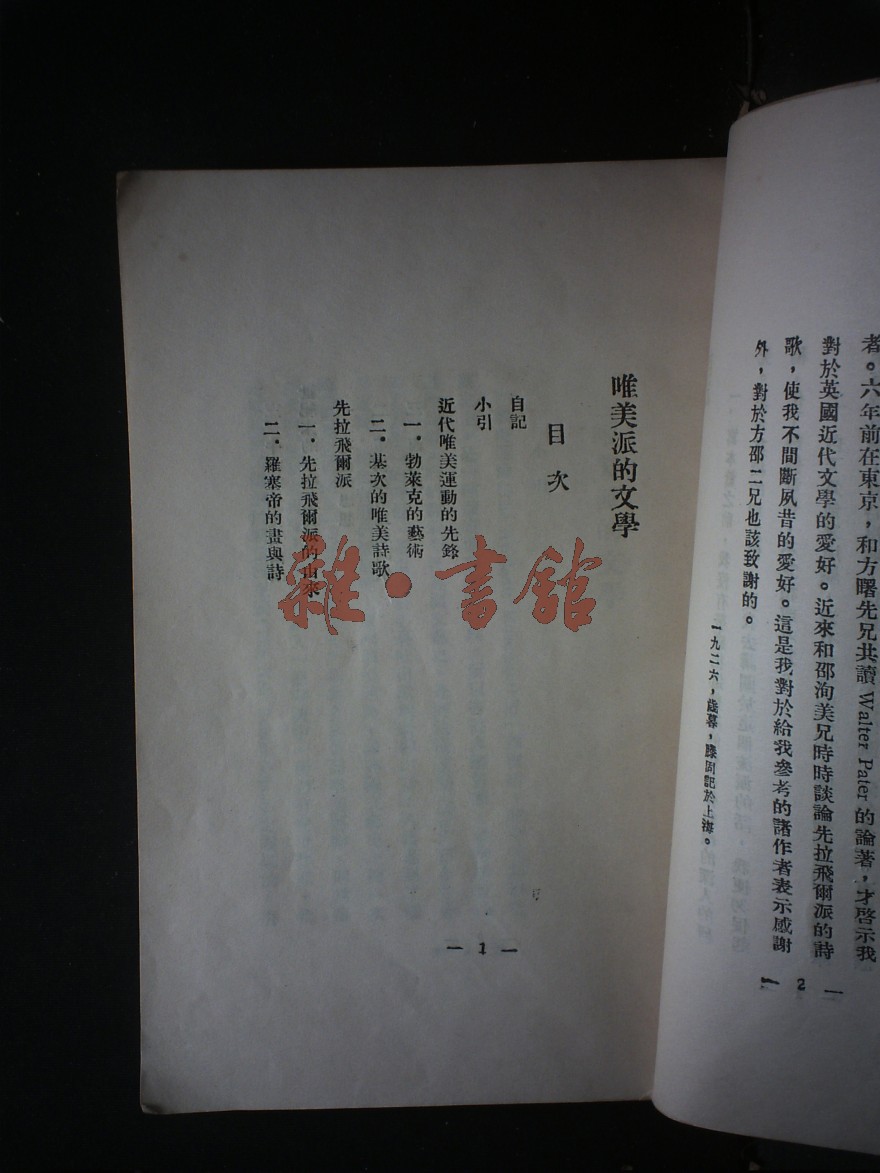 者。六年前在東京，和方曙先兄共讀 Walter Pater 的論著，才啓示我
對於英國近代文學的愛好。近來和邵洵美兄時時談論先拉飛爾派的詩
歌，使我不間斷夙昔的愛好。這是我對於給我參考的諸作者表示感謝
外，對於方邵二兄也該致謝的。
一九二六，歲暮，滕固記於上海。
— 2 —
唯美派的文學
目次
自記
小引
近代唯美運動的先鋒
一．勃萊克的藝術
二．基次的唯美詩歌
先拉飛爾派
一．先拉飛爾派的由來
二．羅塞帝的畫與詩
— 1 —
雜·書館